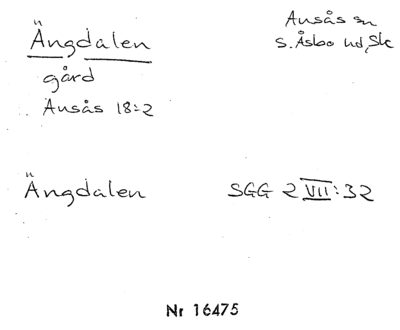 Ängdalen
Ausås sn
S. Åsbo hd, Sk
gård
Ausås 18:2
Ängdalen SGG 2 VII:32
Nr 16475